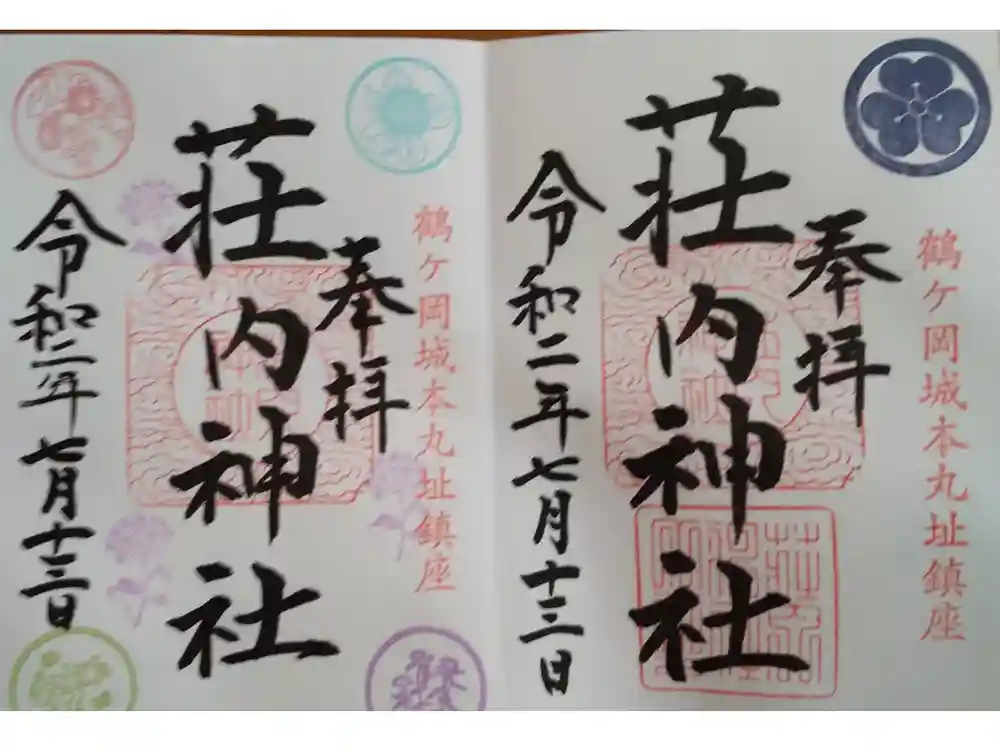 鶴ヶ岡城本丸址鎮座
奉拝
荘内神社
令和二年七月十三日
鶴ヶ岡城本丸址鎮座
奉拝
荘内神社
令和二年七月十三日